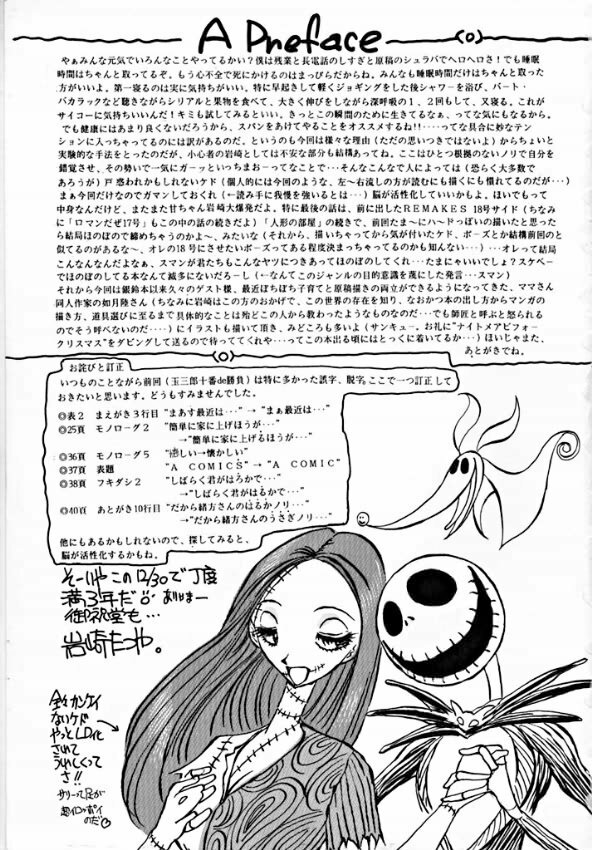 A Preface
やぁみんな元気でいろんなことやってるかい?僕は残業と長電話のしすぎと原稿のシュラバでヘロヘロさ!でも睡眠
時間はちゃんと取ってるぞ。もう心不全で死にかけるのはまっぴらだからね。みんなも睡眠時間だけはちゃんと取った
方がいいよ。第一寝るのは実に気持ちがいい。特に早起きして軽くジョギングをした後シャワーを浴び、バート・
バカラックなど聴きながらシリアルと果物を食べて、大きく伸びをしながら深呼吸の1、2回もして、又寝る。これが
サイコーに気持ちいいんだ!キミも試してみるといい。きっとこの瞬間のために生きてるなぁ、ってな気にもなるから。
でも健康にはあまり良くないだろうから、スパンをあけてやることをオススメするね!!‥‥ってな具合に妙なテン
ションに入っちゃってるのには訳があるのだ。というのも今回は様々な理由(ただの思いつきではないよ)からちょいと
実験的な手法をとったのだが、小心者の岩崎としては不安な部分も結構あってね。ここはひとつ根拠のないノリで自分を
錯覚させ、その勢いで一気にガーッといっちまおーってなことで…そんなこんなで人によっては(恐らく大多数で
あろうが)戸惑われかもしれないケド(個人的には今回のような、左〜右流しの方が読むにも描くにも慣れてるのだが…)
まぁ今回だけなのでガマンしておくれ(←読み手に我慢を強いるとは…)脳が活性化していいかもよ。ほいでもって
中身なんだけど、またまた甘ちゃん岩崎大爆発だよ。特に最後の話は、前に出したREMAKES 18号サイド(ちなみ
に「ロマンだぜ17号」もこの中の話の続きだよ)「人形の部屋」の続きで、前回たま〜にハードっぽいの描いたと思った
ら結局ほのぼので締めちゃうのかよ〜、みたいな(それから、描いちゃってから気が付いたケド、ポーズとか結構前回のと
似てるのがあるな〜 オレの18号にさせたいポーズってある程度決まっちゃってるのかも知んない)…オレって結局
こんなんなんだよなぁ、スマンが君たちもこんなヤツにつきあってほのぼのしてくれ…たまにゃいいでしょ?スケベー
でほのぼのしてる本なんて滅多にないだろーし(←なんてこのジャンルの目的意識を蔑にした発言…スマン)
それから今回は銀鈴本以来久々のゲスト様、最近ぼちぼち子育てと原稿描きの両立ができるようになってきた、ママさん
同人作家の如月陸さん(ちなみに岩崎はこの方のおかげで、この世界の存在を知り、なおかつ本の出し方からマンガの
描き方、道具選びに至るまで具体的なことは殆どこの人から教わったようなものなのだ…でも師匠と呼ぶと怒られる
のでそう呼べないのだ‥‥)にイラストも描いて頂き、みどころも多いよ(サンキュー。お礼に"ナイトメアビフォー
クリスマス"をダビングして送るので待っててくれや…ってこの本出る頃にはとっくに着いてるか…)ほいじゃまた、
あとがきでね。
お詫びと訂正
いつものことながら前回(玉三郎十番de勝負)は特に多かった誤字、脱字。ここで一つ訂正して
おきたいと思います。どうもすみませんでした。
◎表2 まえがき3行目 "まあす最近は…" → "まぁ最近は…"
◎25頁 モノローグ2 "簡単に家に上げほうが…"
→"簡単に家に上げるほうが…"
◎36頁 モノローグ5 →懐かしい"
◎37頁 表題 "A COMICS" → "A COMIC"
◎38頁 フキダシ2 "しばらく君がはろかで…"
→"しばらく君がはるかで…"
◎40頁 あとがき10行目 "だから緒方さんのはるかノリ…"
→"だから緒方さんのうさぎノリ…"
他にもあるかもしれないので、探してみると、
脳が活性化するかもね。
そーいやこの12/30で丁度
満3年だ
岩崎たつや。
全々カンケイ
ないケド
やっとLD化
されて
うれしくって
さ!!
サリーって足が
のだ